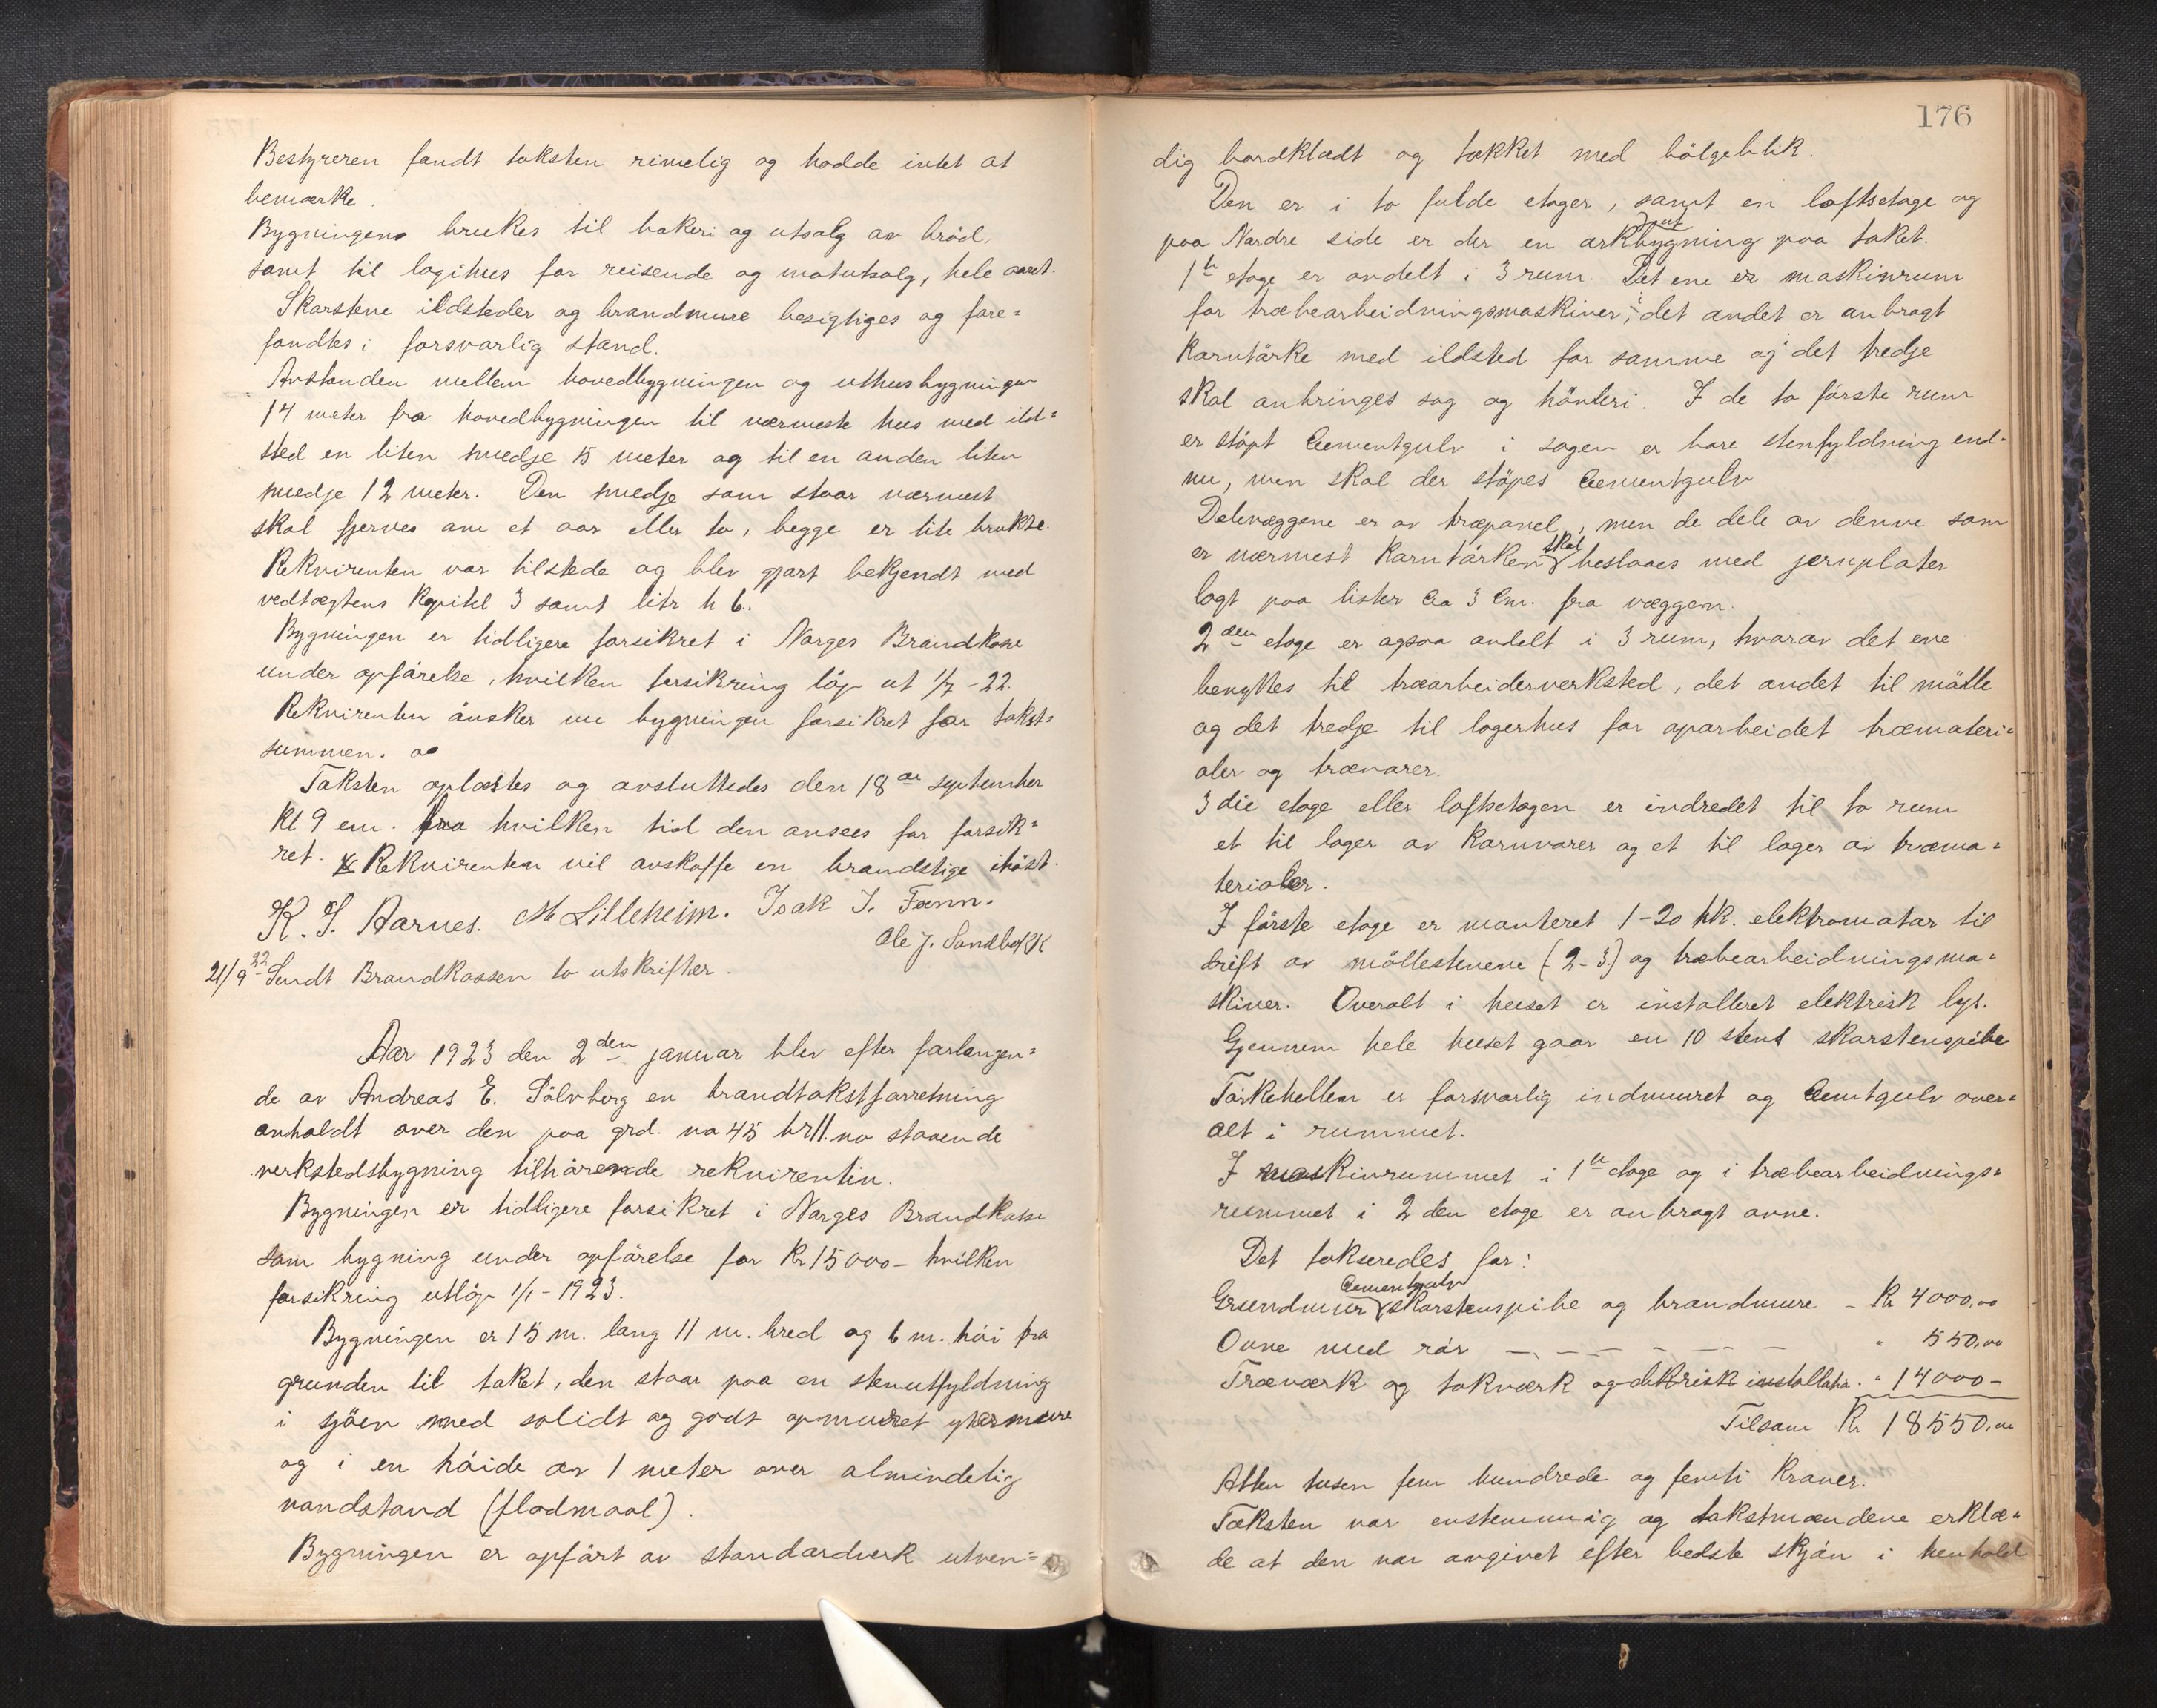 Bestyreren fandt taksten rimelig og hadde intet at
bemærke.
Bygningene brukes til bakeri og utsalg av bröd,
samt til logihus for reisende og matutsalg, hele aaret.
Skorstene ildsteder og brandmure besigtiges og fore=
fandtes i forsvarlig stand.
Avstanden mellem hovedbygningen og uthusbygningen
14 meter fra hovedbygningen til nærmeste hus med ild=
sted en liten smedje 15 meter og til en anden liten
smedje 12 meter. Den smedje som staar nærmest
skal fjernes om et aar eller to, begge er lite brukte.
Rekvirenten var tilstede og blev gjort bekjendt med
vedtægtens Kapitel 3 samt litr h 6.
Bygningen er tidligere forsikret i Norges Brandkasse
under opförelse, hvilken forsikring löp ut 1/7-22.
Rekvirenten önsker nu bygningen forsikret for takst=
summen.
Taksten oplæstes og avsluttedes den 18de september
Kl 9 em. fra hvilken tid den ansees for forsik=
ret. Rekvirenten vil anskaffe en brandstige ihöst.
K. S. Aarnes. M Lilleheim. Isak J. Fann.
Ole J. Sandbekk
21/9 22 Sendt Brandkassen to utskrifter.
Aar 1923 den 2den januar blev efter forlangen=
de av Andreas E. Sölvberg en brandtakstforretning
anholdt over den paa grd. no 45 br 11. no staaende
verkstedsbygning tilhörende rekvirentin.
Bygningen er tidligere forsikret i Norges Brandkasse
som bygning under opförelse for Kr 15000- hvilken
forsikring utlöp 1/1-1923.
Bygningen er 15 m. lang 11 m. bred og 6 m. höi fra
grunden til taket, den staar paa en stenutfyldning
i sjöen med solidt og godt opmuret ytermure
og i en höide av 1 meter over almindelig
vandstand (flodmaal).
Bygningen er opfört av standardverk utven=
176
dig bordklædt og tækket med bölgeblik.
Den er i to fulde etager, samt en loftsetage og
paa Nordre side er der en arkutbygning paa taket.
1te etage er avdelt i 3 rum. Det ene er maskinrum
for træbearbeidningsmaskiner, i det andet er anbragt
Korntörke med ildsted for samme og i det tredje
skal anbringes sag og hövleri. I de to förste rum
er stöpt Cementgulv i sagen er bare stenfyldning end=
nu, men skal der stöpes Cementgulv
Delevæggene er av træpanel, men de dele av denne som
er nærmest Korntörken skal beslaaes med jernplater
lagt paa lister Ca 3 Cm. fra væggen.
2den etage er ogsaa avdelt i 3 rum, hvorav det ene
benyttes til træarbeiderverksted, det andet til mölle
og det tredje til lagerhus for oparbeidet træmateri=
aler og trævarer.
3die etage eller loftsetagen er indredet til to rum
et til lager av Kornvarer og et til lager av træma=
terialer.
I förste etage er monteret 1-20 hk. elektromotor til
drift av möllestenene (2-3) og træbearbeidningsma=
skiner. Overalt i huset er installeret elektrisk lys.
Gjennem hele huset gaar en 10 stens skorstenspibe
Törkehellen er forsvarlig indmuret og Cemtgulv over=
alt i rummet.
I maskinrummet i 1te etage og i træbearbeidnings=
rummet i 2den etage er anbragt ovne.
Det takseredes for:
Grundmur Cementgulv skorstenspibe og brandmure - Kr 4000,00
Ovne med rör - - - - - - " 550,00
Træværk og takværk og elektrisk installation. " 14000-
Tilsam Kr 18550,00
Atten tusen fem hundrede og femti Kroner.
Taksten var enstemmig og takstmændene erklæ=
de at den var avgivet efter bedste skjön i henhold